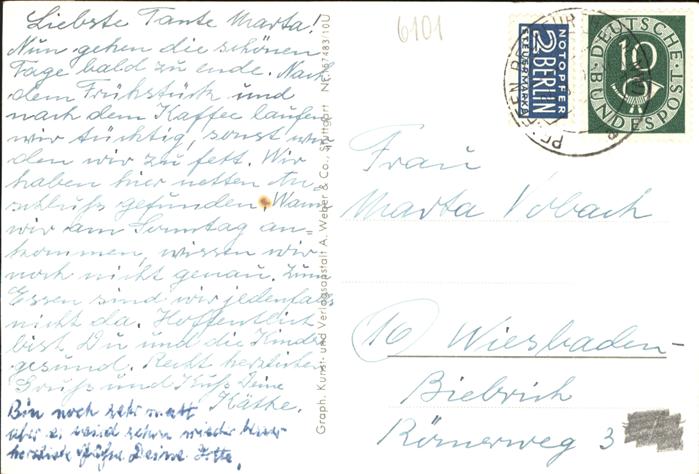 Liebste Tante Marta!
Nun gehen die schönen
Tage bald zu ende. Nach
dem Frühstück und
nach dem Kaffee laufen
wir tüchtig, sonst wür
den wir zu fett. Wir
haben hier netten An
schluß gefunden. Wann
wir am Sonntag an=
kommen, wissen wir
noch nicht genau. Zum
Essen sind wir jedenfalls
nicht da. Hoffentlich
bist Du und die Kinder
gesund. Recht herzlichen
Gruß und Kuß Deine
Käthe.
Bin noch sehr matt
aber es wird schon wieder
herzliche Grüße Deine
Graph. Kunst- und Verlagsanstalt A. Weber & Co., Stuttgart
6101
NOTOPFER
2 BERLIN
STEUERMARKE
DEUTSCHE
BUNDESPOST
10
Frau
Marta Vobach
(16) Wiesbaden-
Biebrich
Römerweg 3